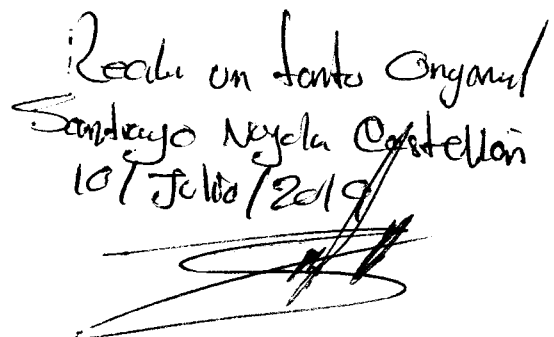 Recibi un tanto Original
Santiago Noyola Castellón
10/Julio/2019